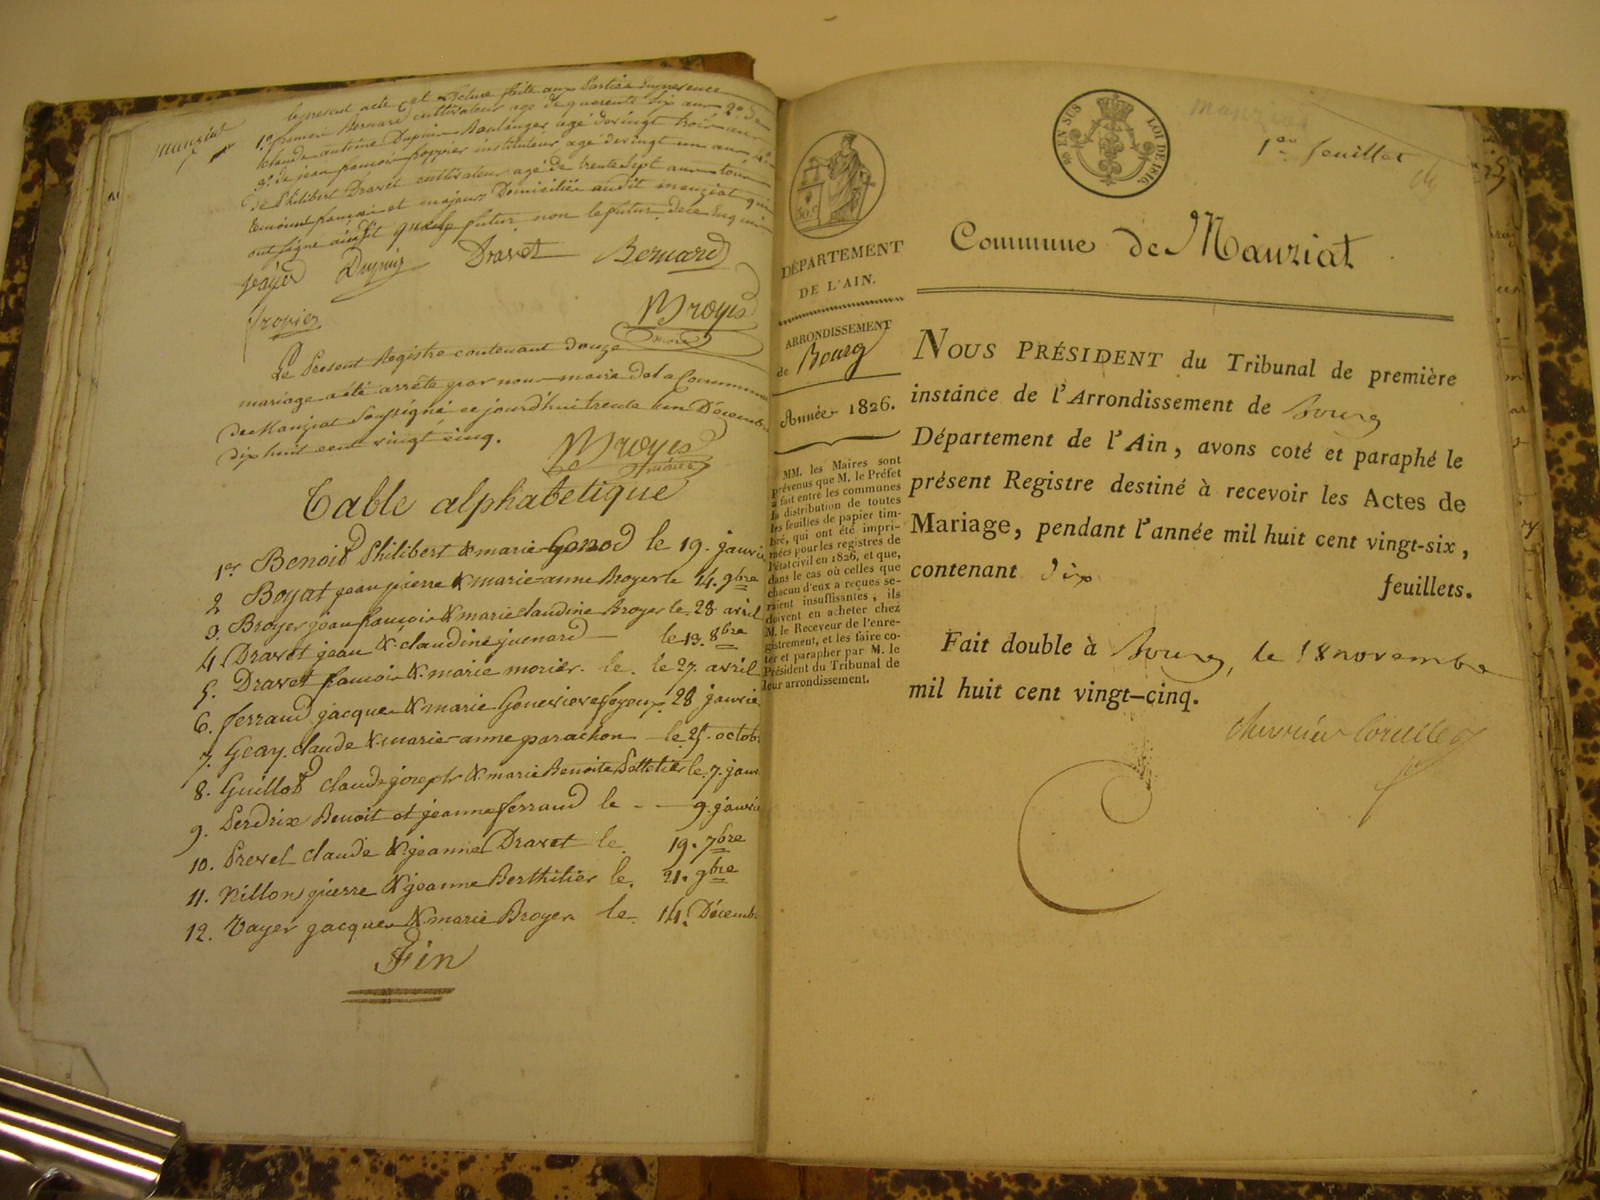 manziat
le present acte et lecture faite aux Parties En presence
1º Bernard cultivateur agé de quarente six ans 2º de
Claude antoine Dupuis Boulanger, agé de vingt trois ans
3º de jean françois instituteur agé de vingt un ans 4º
de Philibert Dravet cultivateur agé de trente sept ans tous
temoins français et majeurs Domiciliés audit manziat qui
ont signé futur non la future
Vayer Dupuis Dravet Bernard
Broyer
maire
Le Présent Registre contenant Douze
mariage a été arrêté par nous maire de la Commune
de Manziat Soussigné ce jourd'hui trente un Décembre
dix huit cent vingt cinq.
Broyer
maire
Table alphabetique
1er Benoit Philibert & marie Gonod le 19. janvie
2 Boyat jean pierre & marie-anne Broyer le 14. 9bre
3. Broyer jean françois & marie claudine Broyer le 28 avril
4. Dravet jean & claudine juenard le 13. 8bre
5. Dravet françois & marie morier. le. le 27. avril
6. ferrand jacques & marie Genevieve foyoux 28 janvie
7. Geay, claude & marie-anne parachon le 25. octob
8. Guillot claude joseph & marie Benoite Pelletier le 7. janv
9. Perdrix Benoit et jeanne ferrand le - 9. janvie
10. Prevel claude & jeanne Dravet le 19. 7bre
11. Nillon pierre & jeanne Berthilier le. 21. 9bre
12. Vayer jacques & marie Broyer le 14. Décemb
Fin
50 c
60 EN SUS
LOI DE 1816.
Manziat
1er feuillet
DÉPARTEMENT
DE L'AIN.
ARRONDISSEMENT
de Bourg
Année 1826.
MM. les Maires sont
prévenus que M. le Préfet
a fait entre les communes
la distribution de toutes
les feuilles de papier tim-
bré, qui ont été impri-
mées pour les registres de
l'état civil en 1826, et que,
dans le cas où celles que
chacun d'eux a reçues se-
raient insuffisantes, ils
doivent en acheter chez
M. le Receveur de l'enre-
gistrement, et les faire co-
ter et parapher par M. le
Président du Tribunal de
leur arrondissement.
Commune de Manziat
NOUS PRÉSIDENT du Tribunal de première
instance de l'Arrondissement de Bourg
Département de l'Ain, avons coté et paraphé le
présent Registre destiné à recevoir les Actes de
Mariage, pendant l'année mil huit cent vingt-six,
contenant dix feuillets.
Fait double à Bourg, le 18 novembre
mil huit cent vingt-cinq.